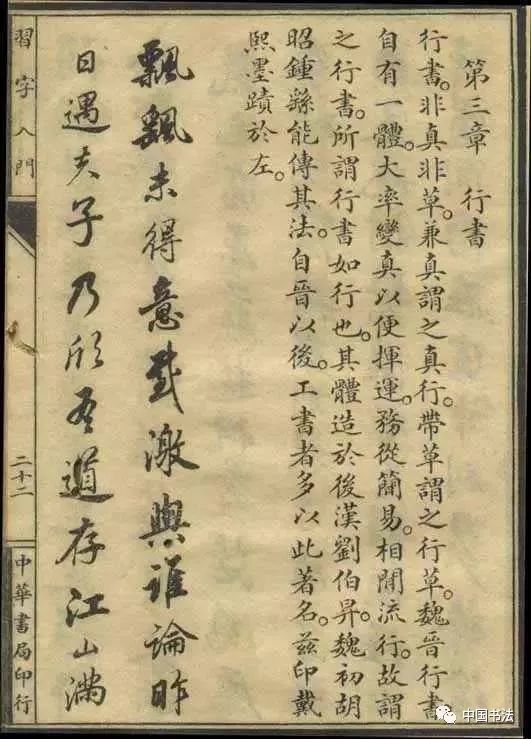 第三章 行書
行書。非真非草。兼真謂之真行。帶草謂之行草。魏晉行書
自有一體。大率變真以便揮運。務從簡易。相閒流行。故謂
之行書。所謂行書如行也。其體造於後漢劉伯昇。魏初胡
昭鍾繇能傳其法。自晉以後。工書者多以此著名。兹印戴
熙墨蹟於左。
飄飄未得意感激與誰論昨
日遇夫子乃欣吾道存江山滿
習字入門
二十二
中華書局印行
中国书法